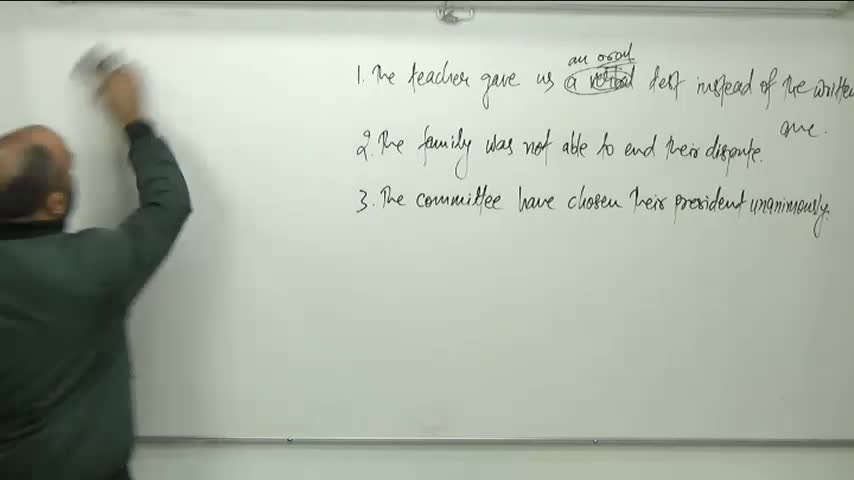 an oral
1. The teacher gave us a verbal test instead of the written
one.
2. The family was not able to end their dispute.
3. The committee have chosen their president unanimously.